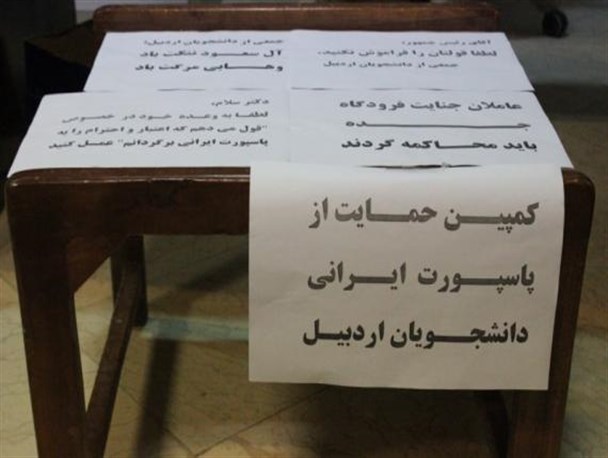 آقای رئیس جمهور،
لطفا قولتان را فراموش نکنید.
جمعی از دانشجویان اردبیل
جمعی از دانشجویان اردبیل:
آل سعود ننگت باد
وهابی مرگت باد
عاملان جنایت فرودگاه
جده
باید محاکمه گردند
دکتر سلام،
لطفا به وعده خود در خصوص
"قول می دهم که اعتبار و احترام را به
پاسپورت ایرانی برگردانم" عمل کنید
کمپین حمایت از
پاسپورت ایرانی
دانشجویان اردبیل